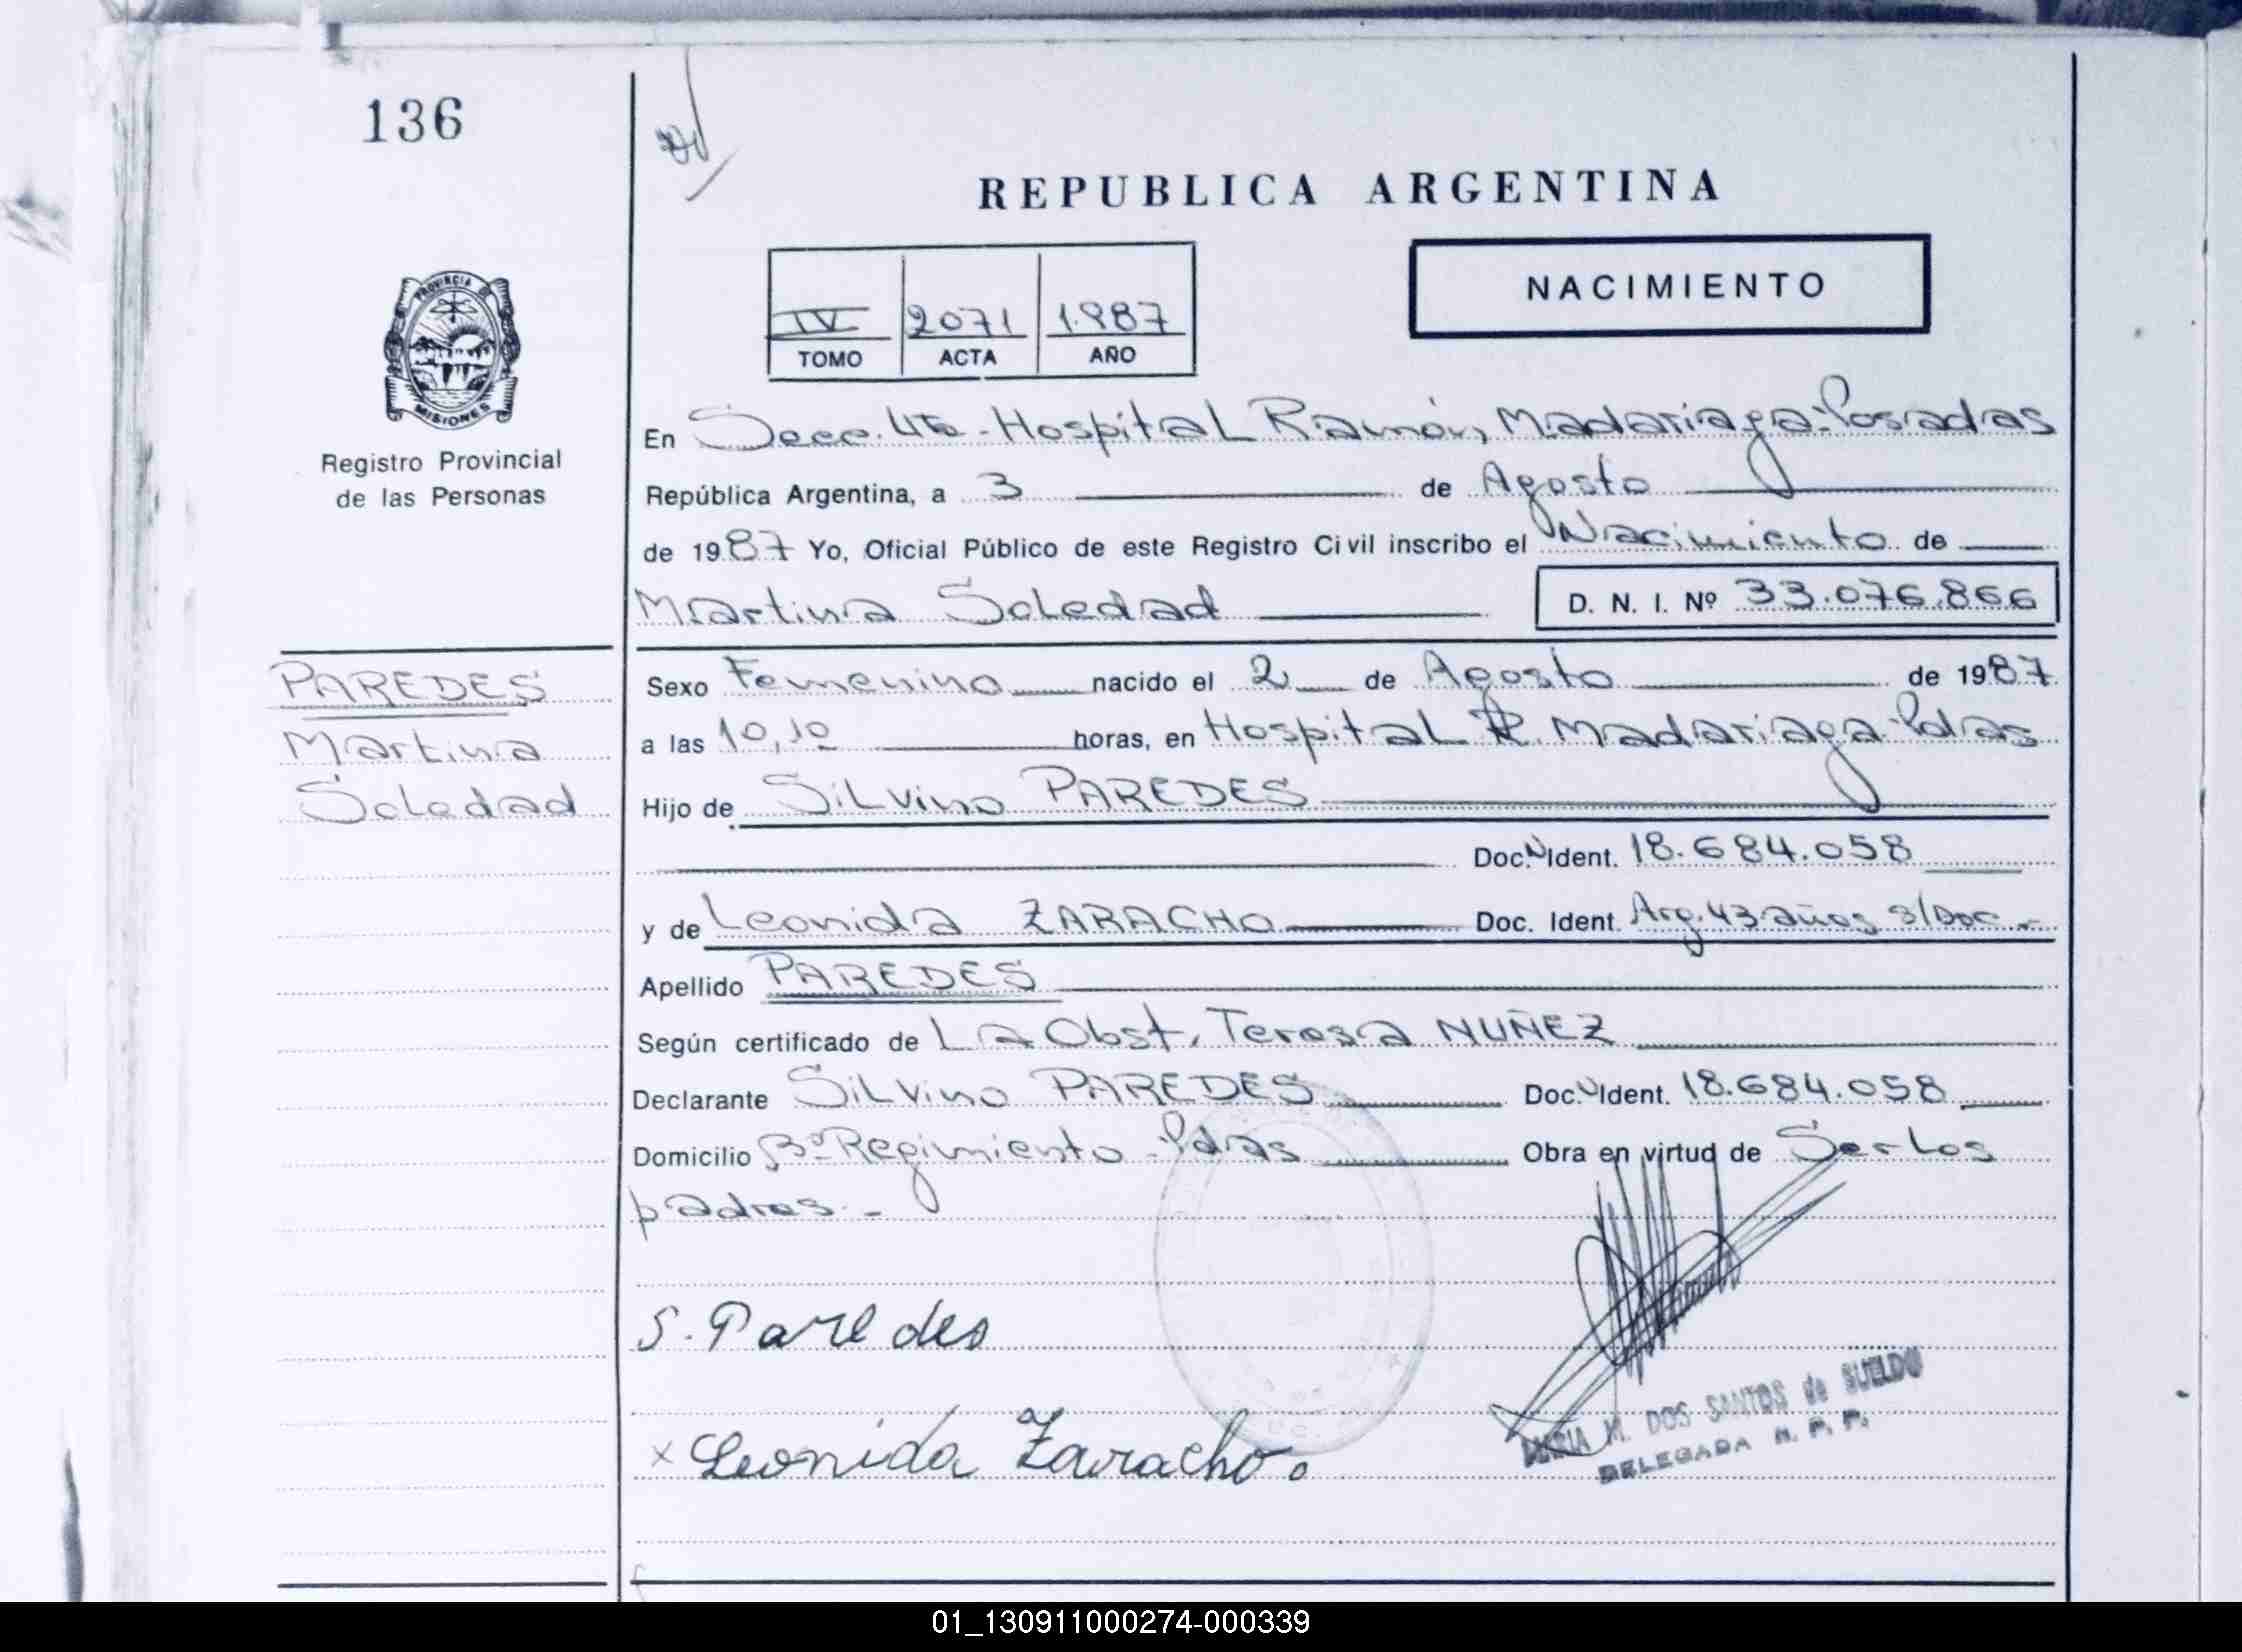 136
REPUBLICA ARGENTINA
NACIMIENTO
IV 2071 1.987
TOMO ACTA AÑO
PROVINCIA DE
MISIONES
Registro Provincial
de las Personas
En Secc. 4ta - Hospital Ramón Madariaga - Posadas
República Argentina, a 3 de Agosto
de 1987 Yo, Oficial Público de este Registro Civil inscribo el Nacimiento de
Martina Soledad D. N. I. Nº 33.076.866
PAREDES
Martina
Soledad
Sexo Femenino nacido el 2 de Agosto de 1987
a las 10,10 horas, en Hospital R. Madariaga - Pdas
Hijo de Silvino PAREDES
Doc. Ident. 18.684.058
y de Leonida ZARACHO Doc. Ident. Arg. 43 años s/Doc.-
Apellido PAREDES
Según certificado de La Obst. Teresa NUÑEZ
Declarante Silvino PAREDES Doc. Ident. 18.684.058
Domicilio Bº Regimiento - Pdas Obra en virtud de Ser los
padres. -
S. Paredes
x Leonida Zaracho.
M. DOS SANTOS de SUELDO
DELEGADA R. P. P.
01_130911000274-000339